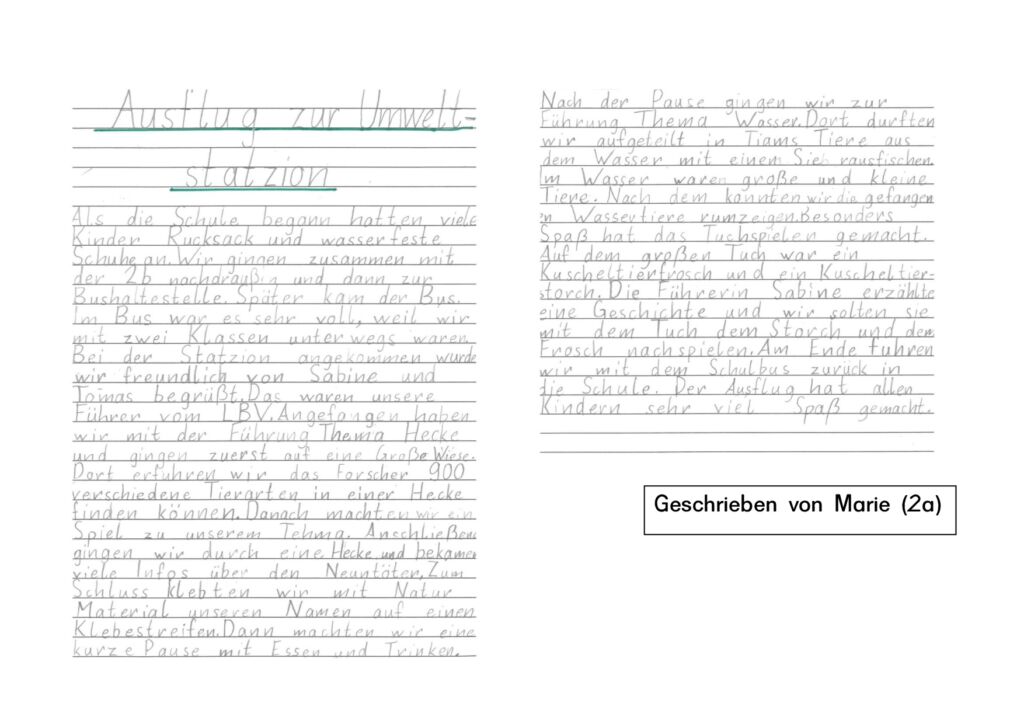 Ausflug zur Umwelt-
statzion
Als die Schule begann hatten viele
Kinder Rucksack und wasserfeste
Schuhe an. Wir gingen zusammen mit
der 2b nochdraußin und dann zur
Bushaltestelle. Später kam der Bus.
Im Bus war es sehr voll, weil wir
mit zwei Klassen unterwegs waren.
Bei der Statzion angekommen wurde
wir freundlich von Sabine und
Tomas begrüßt. Das waren unsere
Führer vom LBV. Angefangen haben
wir mit der Führung Thema Hecke
und gingen zuerst auf eine Große Wiese.
Dort erfuhren wir das Forscher 900
verschiedene Tierarten in einer Hecke
finden können. Danach machten wir ein
Spiel zu unserem Tehma. Anschließen
gingen wir durch eine Hecke und bekamen
viele Infos über den Neuntöter. Zum
Schluss klebten wir mit Natur
Material unseren Namen auf einen
Klebestreifen. Dann machten wir eine
kurze Pause mit Essen und Trinken.
Nach der Pause gingen wir zur
Führung Thema Wasser. Dort durften
wir aufgeteilt in Tiams Tiere aus
dem Wasser mit einem Sieb rausfischen.
Im Wasser waren große und kleine
Tiere. Nach dem konnten wir die gefangen
en Wassertiere rumzeigen. Besonders
Spaß hat das Tuchspielen gemacht.
Auf dem großen Tuch war ein
Kuscheltierfrosch und ein Kuscheltier-
storch. Die Führerin Sabine erzählte
eine Geschichte und wir solten sie
mit dem Tuch dem Storch und dem
Frosch nachspielen. Am Ende fuhren
wir mit dem Schulbus zurück in
die Schule. Der Ausflug hat allen
Kindern sehr viel Spaß gemacht.
Geschrieben von Marie (2a)